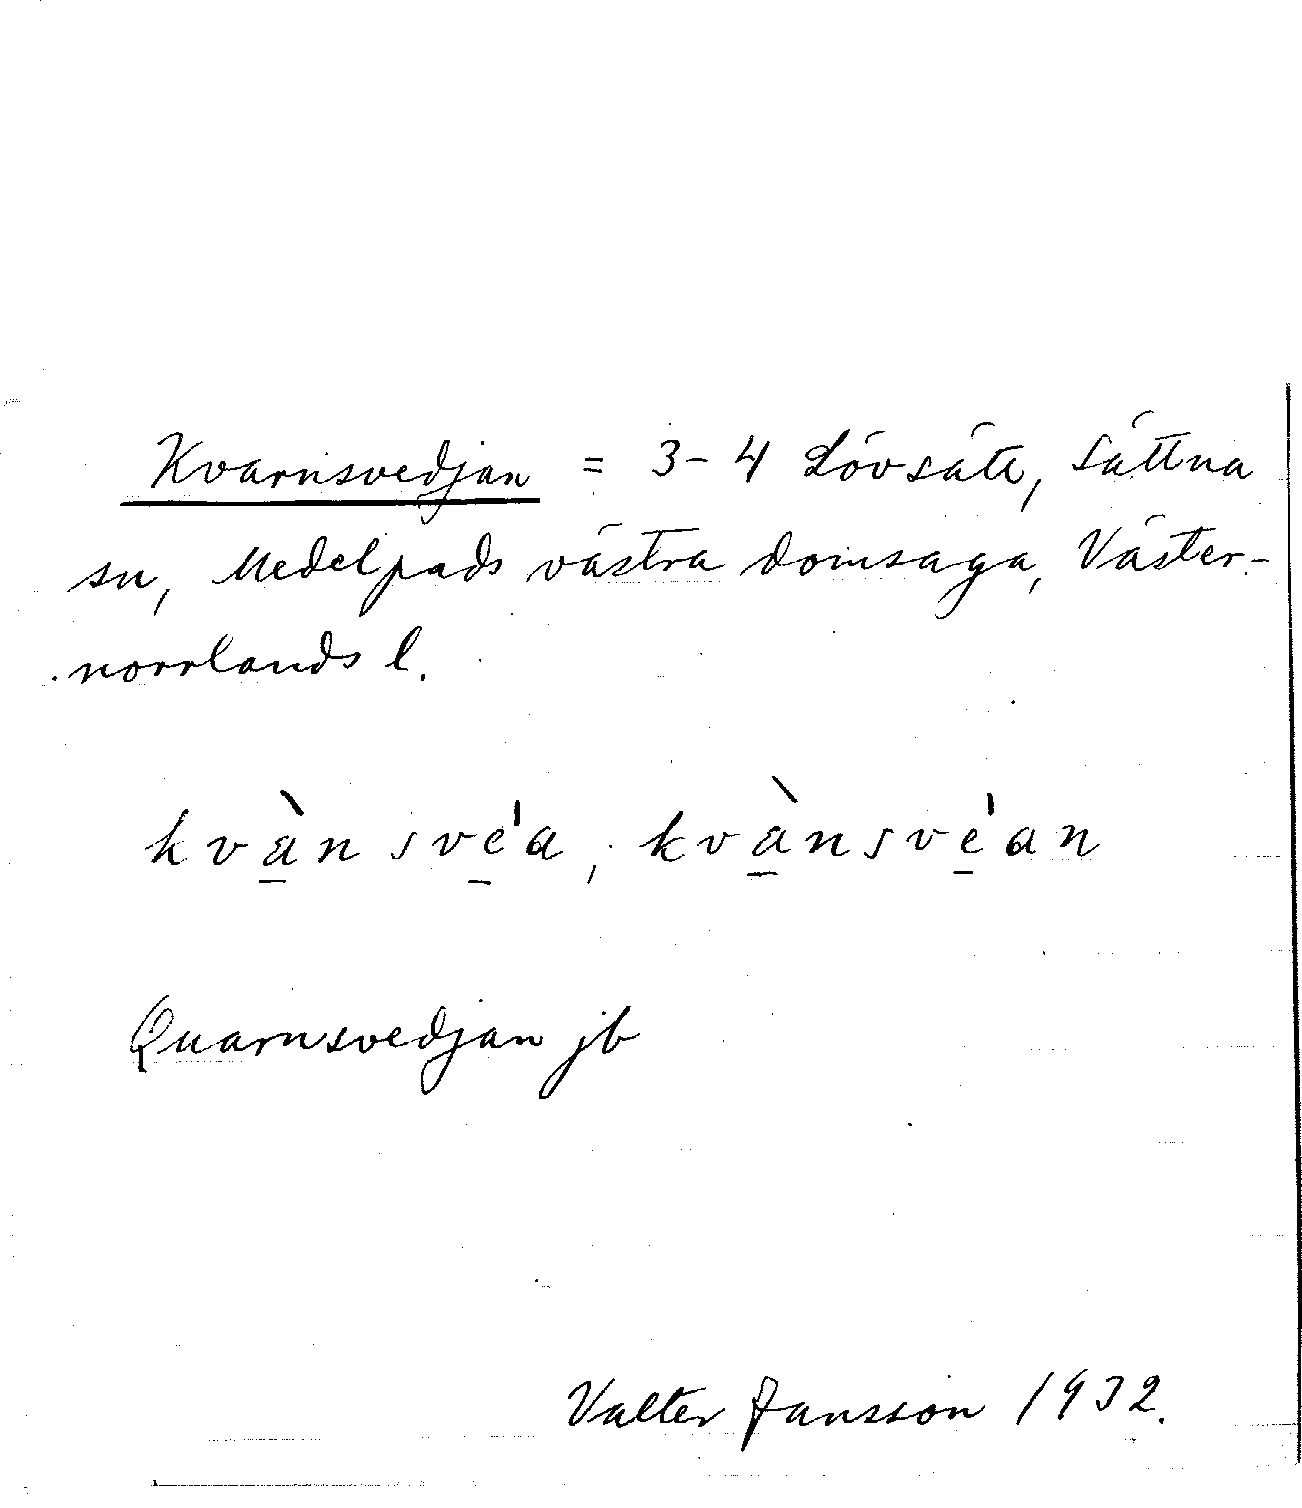 Kvarnsvedjan = 3-4 Lövsåte, Sättna
sn, Medelpads västra domsaga, Väster-
norrlands l.
kvànsve̍a, kvànsve̍an
Quarnsvedjan jb
Valter Jansson 1932.